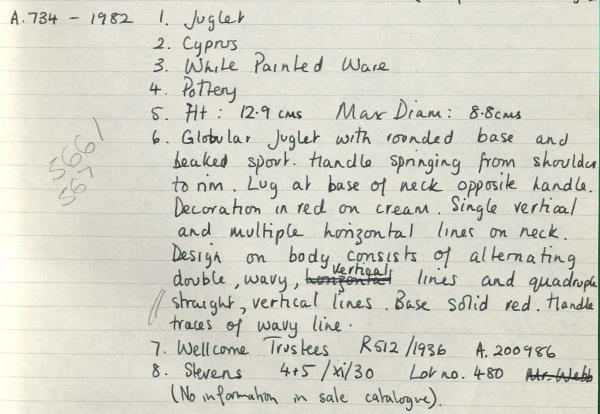 A.734 - 1982 1. Juglet
2. Cyprus
3. White Painted Ware
4. Pottery
5. Ht: 12.9 cms Max Diam: 8.8cms
6. Globular Juglet with rounded base and
beaked spout. Handle springing from shoulder
to rim. Lug at base of neck opposite handle.
Decoration in red on cream. Single vertical
and multiple horizontal lines on neck.
Design on body consists of alternating
double, wavy, horizontal vertical lines and quadruple
straight, vertical lines. Base solid red. Handle
traces of wavy line.
7. Wellcome Trustees R512/1936 A.200986
8. Stevens 4+5/xi/30 Lot no. 480 Mr. Webb
(No information in sale catalogue).
5661
567